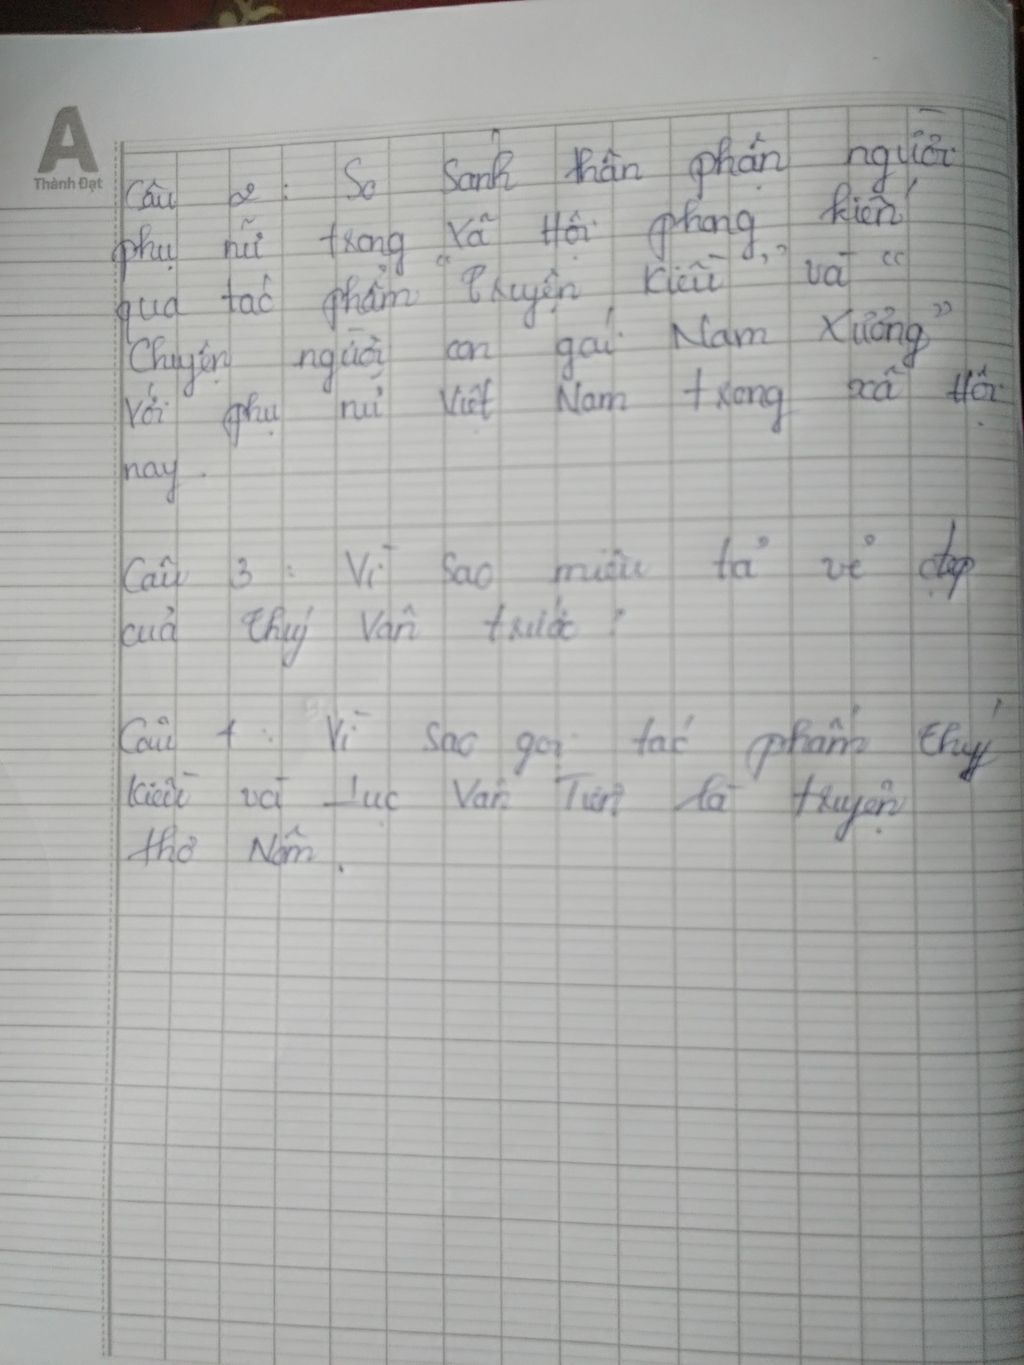 A
Thành Đạt
Câu 2: So Sánh thân phận người
phụ nữ trong xã Hội phong kiến
qua tác phẩm "Truyện Kiều" và "
Chuyện người con gái Nam Xương"
Với phụ nữ Việt Nam trong xã Hội
nay.
Câu 3: Vì Sao miêu tả vẻ đẹp
của Thuý Vân trước?
Câu 4: Vì Sao gọi tác phẩm Thuý
Kiều và Lục Vân Tiên là truyện
thơ Nôm.